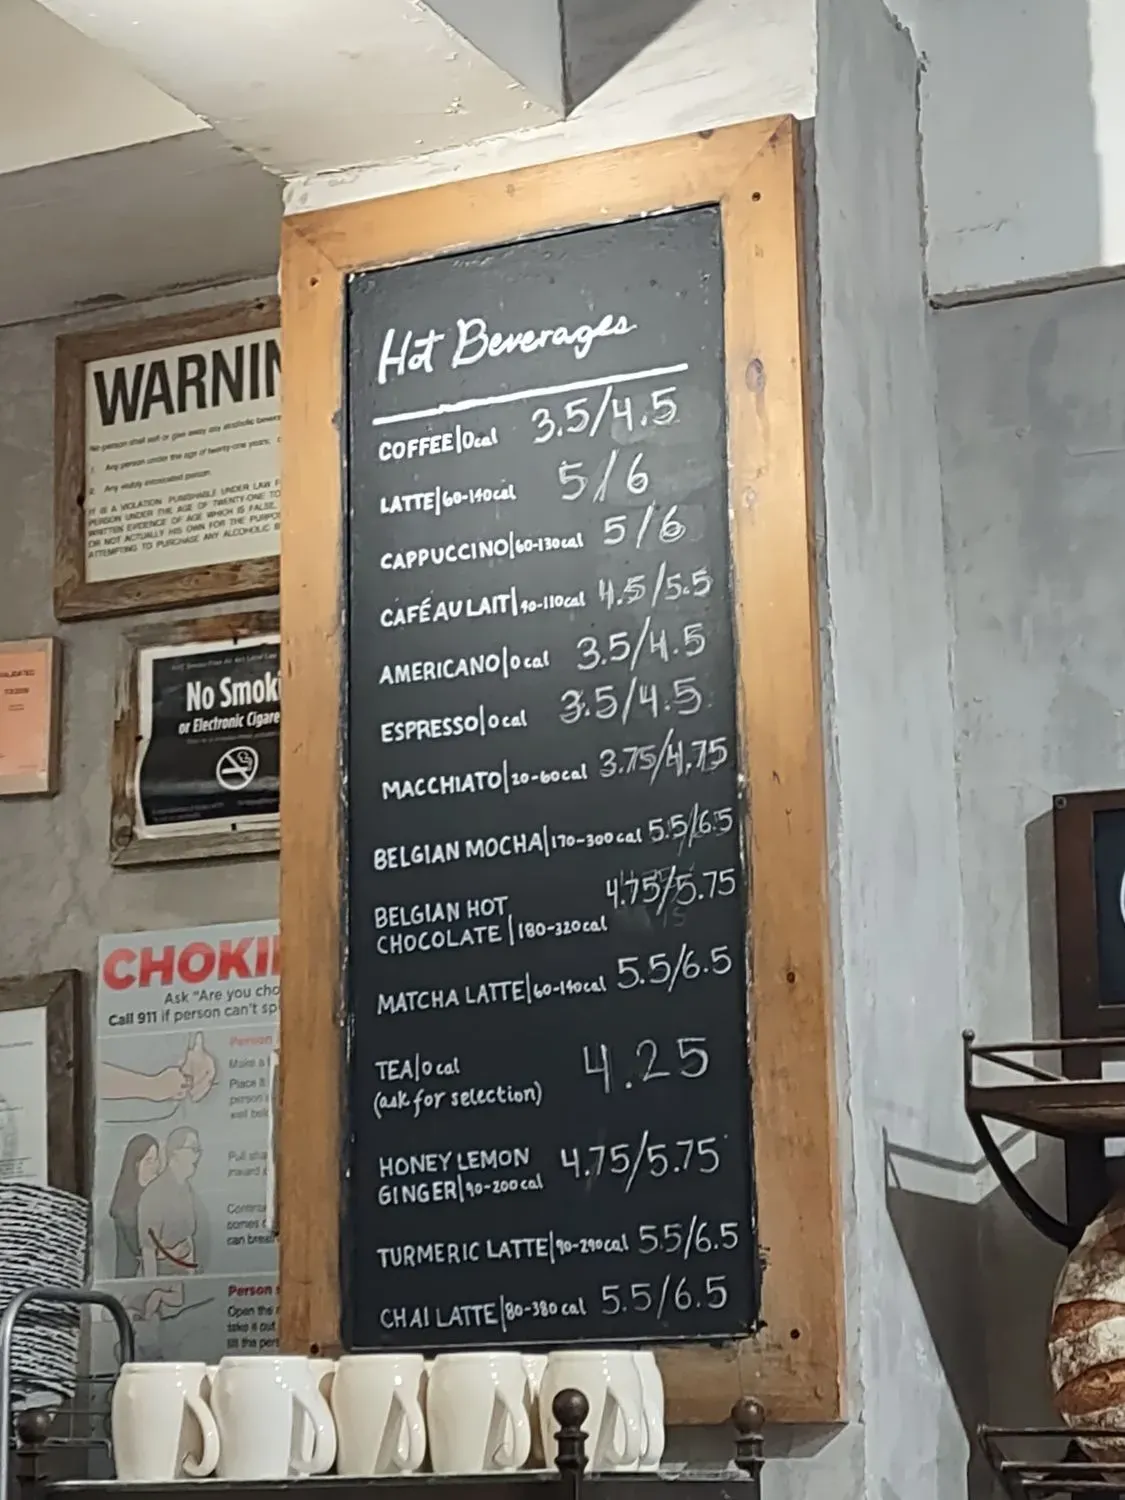 Hot Beverages
COFFEE|0cal 3.5/4.5
LATTE|60-140cal 5/6
CAPPUCCINO|60-130cal 5/6
CAFÉ AU LAIT|90-110cal 4.5/5.5
AMERICANO|0cal 3.5/4.5
ESPRESSO|0cal 3.5/4.5
MACCHIATO|20-60cal 3.75/4.75
BELGIAN MOCHA|170-300cal 5.5/6.5
BELGIAN HOT 4.75/5.75
CHOCOLATE|180-320cal
MATCHA LATTE|60-140cal 5.5/6.5
TEA|0cal 4.25
(ask for selection)
HONEY LEMON 4.75/5.75
GINGER|90-200cal
TURMERIC LATTE|90-290cal 5.5/6.5
CHAI LATTE|80-380cal 5.5/6.5
WARNIN
No person shall sell or give away any alcoholic
Any person under the age of twenty-one years;
Any visibly intoxicated person
IT IS A VIOLATION PUNISHABLE UNDER LAW
PERSON UNDER THE AGE OF TWENTY-ONE TO
WRITTEN EVIDENCE OF AGE WHICH IS FALSE,
OR NOT ACTUALLY HIS OWN FOR THE PURPO
ATTEMPTING TO PURCHASE ANY ALCOHOLIC B
No Smok
or Electronic Cigare
CHOKI
Ask "Are you cho
Call 911 if person can't sp
Person
Make a
Place
person
Pull
inward
comes
can breat
Person
Open the
take it out